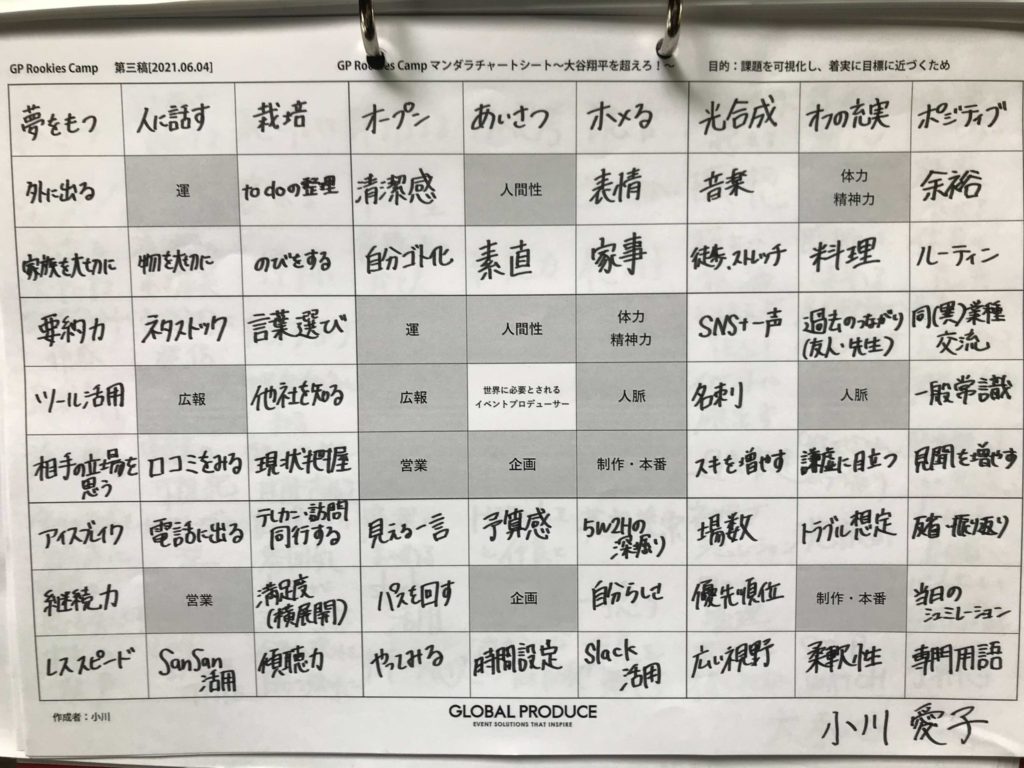 GP Rookies Camp 第三稿[2021.06.04] GP Rookies Camp マンダラチャートシート〜大谷翔平を超えろ！〜 目的：課題を可視化し、着実に目標に近づくため
夢をもつ 人に話す 栽培 オープン あいさつ ホメる 光合成 オフの充実 ポジティブ
外に出る 運 to doの整理 清潔感 人間性 表情 音楽 体力 精神力 余裕
家族を大切に 物を大切に のびをする 自分ゴト化 素直 家事 徒歩、ストレッチ 料理 ルーティン
要約力 ネタストック 言葉選び 運 人間性 体力 精神力 SNS+一声 過去のつながり (友人・先生) 同(異)業種 交流
ツール活用 広報 他社を知る 広報 世界に必要とされる イベントプロデューサー 人脈 名刺 人脈 一般常識
相手の立場を 思う 口コミをみる 現状把握 営業 企画 制作・本番 スキを増やす 謙虚に目立つ 見聞を増やす
アイスブレイク 電話に出る テレカン・訪問 同行する 見える一言 予算感 5W2Hの 深掘り 場数 トラブル想定 反省・振り返り
継続力 営業 満足度 (横展開) パスを回す 企画 自分らしさ 優先順位 制作・本番 当日の シュミレーション
レススピード SanSan 活用 傾聴力 やってみる 時間設定 Slack 活用 広い視野 柔軟性 専門用語
作成者：小川
GLOBAL PRODUCE
EVENT SOLUTIONS THAT INSPIRE
小川 愛子